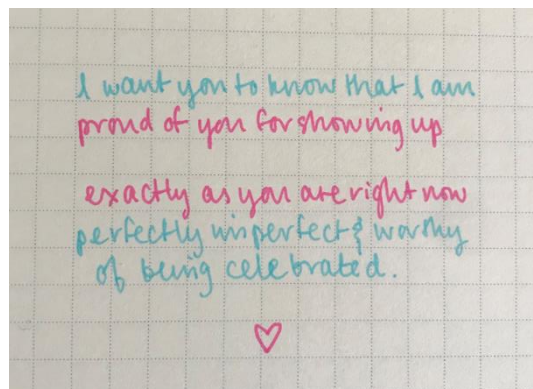 I want you to know that I am
proud of you for showing up
exactly as you are right now
perfectly imperfect & worthy
of being celebrated.